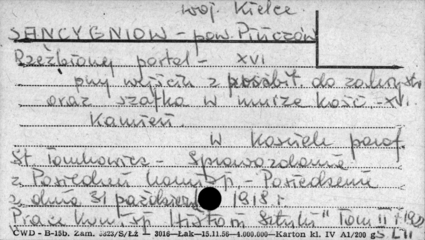 woj. Kielce
SANCYGNIOW - pow. Pińczów
Rzeźbiony portal - XVI
przy wejściu z do zakrystii
oraz szafka w murze kość. - XVI.
Kamień.
W kościele paraf.
St. Tomkowicz - Sprawozdania
z Posiedzeń Komisji - Posiedzenie
z dnia 31 październ 1918 r
Prace Kom. Hist. Sztuki" Tom II
CWD - B-15b. Zam. S/Łż - 3016-Łak-15.11.56-4.000.000-Karton kl. IV A1/200 g